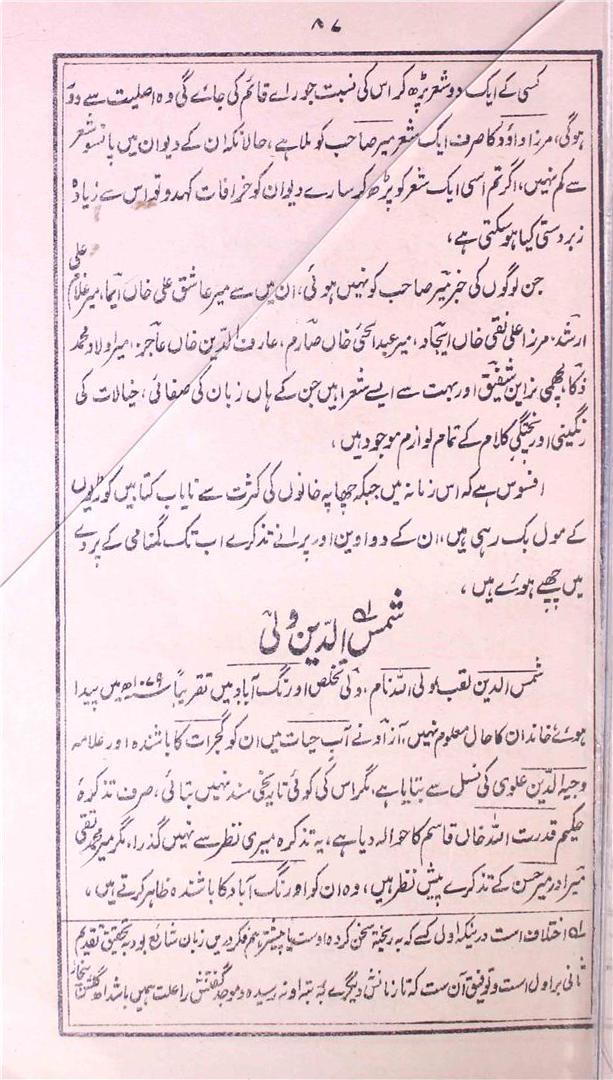 ۸۷
کسی کے ایک دو شعر پڑھ کر اس کی نسبت جو راے قائم کی جائے گی وہ اصلیت سے دور
ہوگی، مرزا داؤد کا صرف ایک شعر میر صاحب کو ملا ہے، حالانکہ ان کے دیوان میں پانسو شعر
سے کم نہیں، اگر تم اسی ایک شعر کو پڑھ کر سارے دیوان کو خرافات کہدو تو اس سے زیادہ
زبردستی کیا ہو سکتی ہے،
جن لوگوں کی خبر میر صاحب کو نہیں ہوئی، ان میں سے میر عاشق علی خاں ایما، میر غلام علی
ارشد، مرزا علی نقی خاں ایجاد، میر عبد الحیٔ خاں صارم، عارف الدین خاں عاجز، میر اولاد محمد
ذکا، لچھمی نراین شفیق اور بہت سے ایسے شعرا ہیں جن کے ہاں زبان کی صفائی، خیالات کی
رنگینی اور پختگیِ کلام کے تمام لوازم موجود ہیں،
افسوس ہے کہ اس زمانہ میں جبکہ چھاپہ خانوں کی کثرت سے نایاب کتابیں کوڑیوں
کے مول بک رہی ہیں، ان کے دواوین اور پرانے تذکرے اب تک گمنامی کے پردے
میں چھپے ہوئے ہیں،
شمس الدین ولی
شمس الدین لقب، ولی اللہ نام، ولی تخلص اورنگ آباد میں تقریباً ۱۰۷۹ھ میں پیدا
ہوئے خاندان کا حال معلوم نہیں، آزاد نے آب حیات میں ان کو گجرات کا باشندہ اور علامہ
وجیہ الدین علوی کی نسل سے بتایا ہے، مگر اس کی کوئی تاریخی سند نہیں بتائی، صرف تذکرۂ
حکیم قدرت اللہ خاں قاسم کا حوالہ دیا ہے، یہ تذکرہ میری نظر سے نہیں گذرا، مگر میر محمد تقی
میر اور میر حسن کے تذکرے پیش نظر ہیں، وہ ان کو اورنگ آباد کا باشندہ ظاہر کرتے ہیں،
لہ اختلاف است در ینکہ اول کسے کہ بہ ریختہ سخن کردہ اوست یا پیشتر ہم فکر دریں زبان شائع بود بہ تحقیق تقدیم
ثانی بر اول است و توفیق آن ست کہ تا زمانش دیگرے بہ رتبہ او نہ رسیدہ و موجد گفتنش را علت ہمیں باشد اھ گلشن بیخار